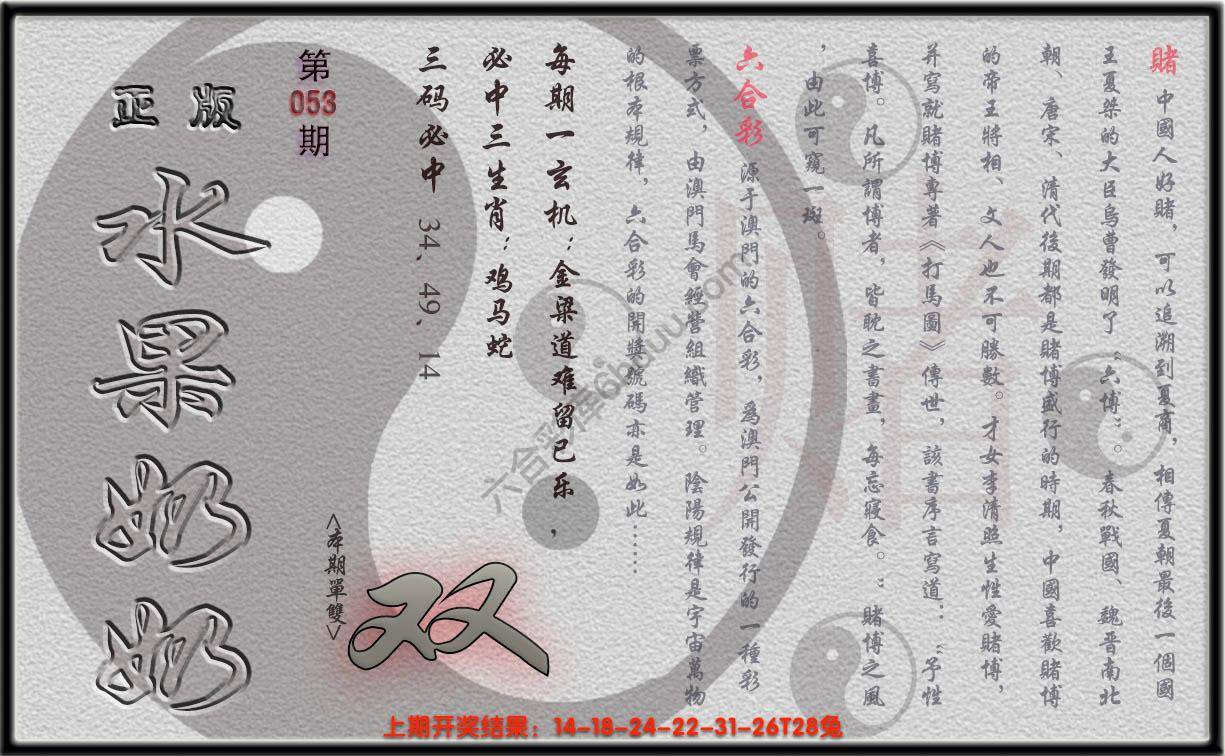 賭 中國人好賭，可以追溯到夏商，相傳夏朝最後一個國
王夏桀的大臣烏曹發明了“六博”。春秋戰國、魏晋南北
朝、唐宋、清代後期都是賭博盛行的時期，中國喜歡賭博
的帝王將相、文人也不可勝數。才女李清照生性愛賭博，
并寫就賭博專著《打馬圖》傳世，該書序言寫道：“予性
喜博。凡所謂博者，皆耽之書畫，每忘寢食。”賭博之風
，由此可窺一斑。
六合彩 源于澳門的六合彩，爲澳門公開發行的一種彩
票方式，由澳門馬會經營組織管理。陰陽規律是宇宙萬物
的根本規律，六合彩的開獎號碼亦是如此……
每期一玄机：金梁道难留已乐，
必中三生肖：鸡马蛇
三码必中 34、49、14
第
053
期
<本期單雙>
双
正版
水果奶奶
賭
六合彩库6huuu.com
上期开奖结果：14-18-24-22-31-26T28兔